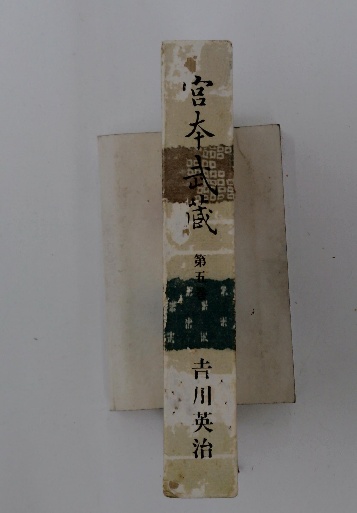 宮本武蔵
第五
吉川英治